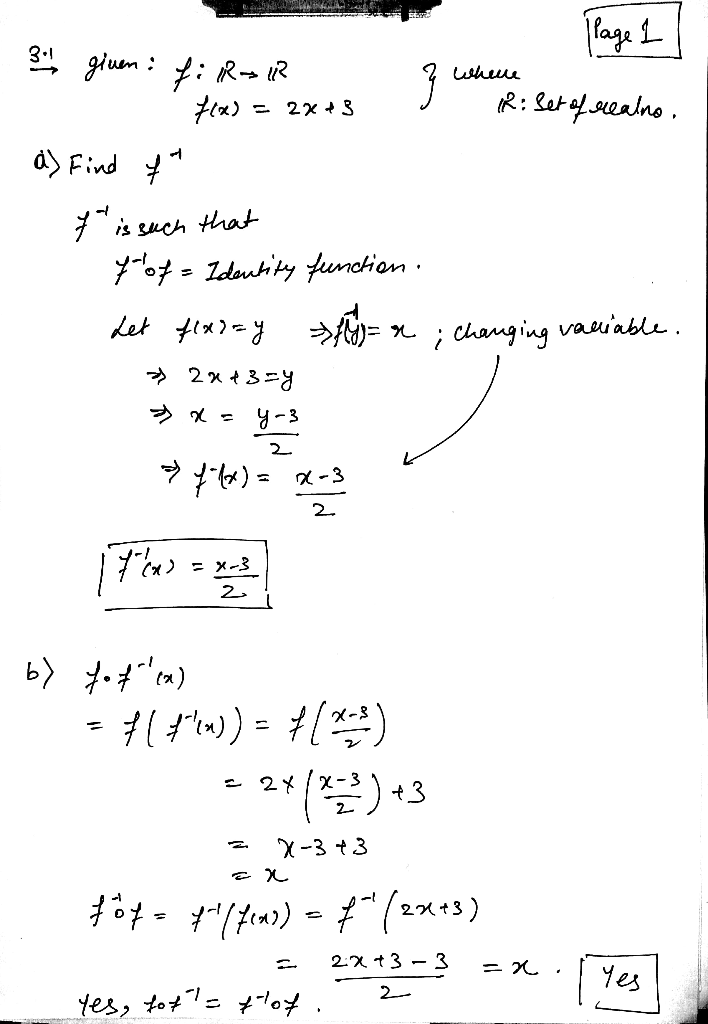 Page 1
3.1 given : f: ℝ→ℝ } where
f(x) = 2x+3 ℝ: Set of real no.
a) Find f⁻¹
f⁻¹ is such that
f⁻¹of = Identity function.
Let f(x)=y ⇒ f⁻¹(y)= x ; changing variable.
⇒ 2x+3=y
⇒ x = (y-3)/2
⇒ f⁻¹(x) = (x-3)/2
f⁻¹(x) = (x-3)/2
b) f∘f⁻¹(x)
= f(f⁻¹(x)) = f((x-3)/2)
= 2×((x-3)/2)+3
= x-3+3
= x
f⁻¹of = f⁻¹(f(x)) = f⁻¹(2x+3)
= (2x+3-3)/2 = x . Yes
Yes, fof⁻¹ = f⁻¹of .